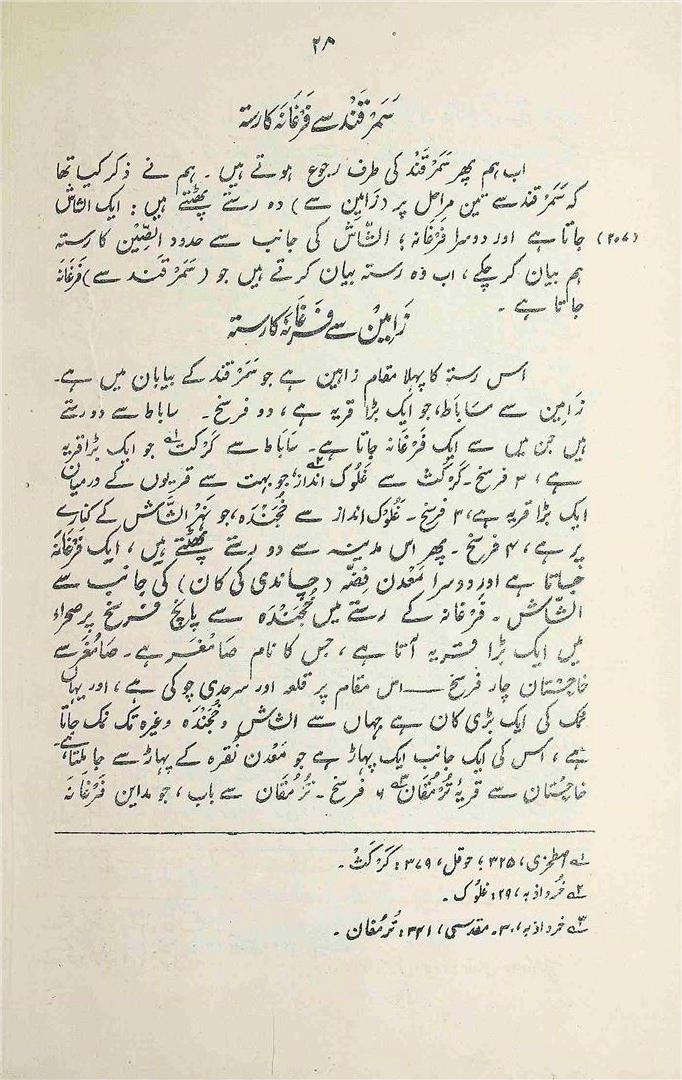 ۲۸
سَمَرْقَنْد سے فَرْغَانَہ کا رستہ
اب ہم پھر سَمَرْقَنْد کی طرف رجوع ہوتے ہیں۔ ہم نے ذکر کیا تھا
کہ سَمَرْقند سے تین مراحل پر (زامین سے) دو رستے پھٹتے ہیں: ایک الشّاش
(۲۰۷) جاتا ہے اور دوسرا فَرْغَانہ؛ الشّاش کی جانب سے حدود الصِّیْن کا رستہ
ہم بیان کر چکے، اب وہ رستہ بیان کرتے ہیں جو (سَمَرْقَند سے) فَرْغَانَہ
جاتا ہے۔
زَامِیْن سے فَرْغَانَہ کا رستہ
اس رستہ کا پہلا مقام زامین ہے جو سَمَرْقند کے بیابان میں ہے۔
زَامِین سے سَابَاط، جو ایک بڑا قریہ ہے، دو فرسخ۔ ساباط سے دو رستے
ہیں جن میں سے ایک فَرْغَانہ جاتا ہے۔ سَابَاط سے کَرْکَث۱ جو ایک بڑا قریہ
ہے، ۳ فرسخ۔ کَرْکَث سے غَلُوک انداز۲، جو بہت سے قریوں کے درمیان
ایک بڑا قریہ ہے، ۳ فرسخ۔ غَلُوک انداز سے خُجَنْدَہ، جو نَہْرُ الشَّاش کے کنارے
پر ہے، ۴ فرسخ۔ پھر اس مدینہ سے دو رستے پھٹتے ہیں، ایک فَرْغَانَہ
جاتا ہے اور دوسرا مَعْدن فِضّہ (چاندی کی کان) کی جانب سے
الشَّاش۔ فَرْغَانہ کے رستے میں خُجَنْدَہ سے پانچ فرسخ پر صحراء
میں ایک بڑا قریہ آتا ہے، جس کا نام صَامْغَر ہے۔ صَامْغَر سے
خاجِسْتان چار فرسخ — اس مقام پر قلعہ اور سرحدی چوکی ہے، اور یہاں
نمک کی ایک بڑی کان ہے جہاں سے الشَّاش و خُجَنْدَہ وغیرہ تک نمک جاتا
ہے، اس کی ایک جانب ایک پہاڑ ہے جو مَعْدن نُقرہ کے پہاڑ سے جا ملتا ہے۔
خاجِسْتان سے قریۂ تُرْمُقَان۳ ۶ فرسخ۔ تُرْمُقَان سے باب، جو مداین فَرْغَانَہ
۱ اصطخری، ۳۲۵؛ حوقل، ۳۷۹: کَرْکَثْ۔
۲ خُرداذبہ، ۲۹: غلُوک۔
۳ خرداذبہ، ۳۰۔ مقدسی، ۳۴۱: تُرمُقان۔